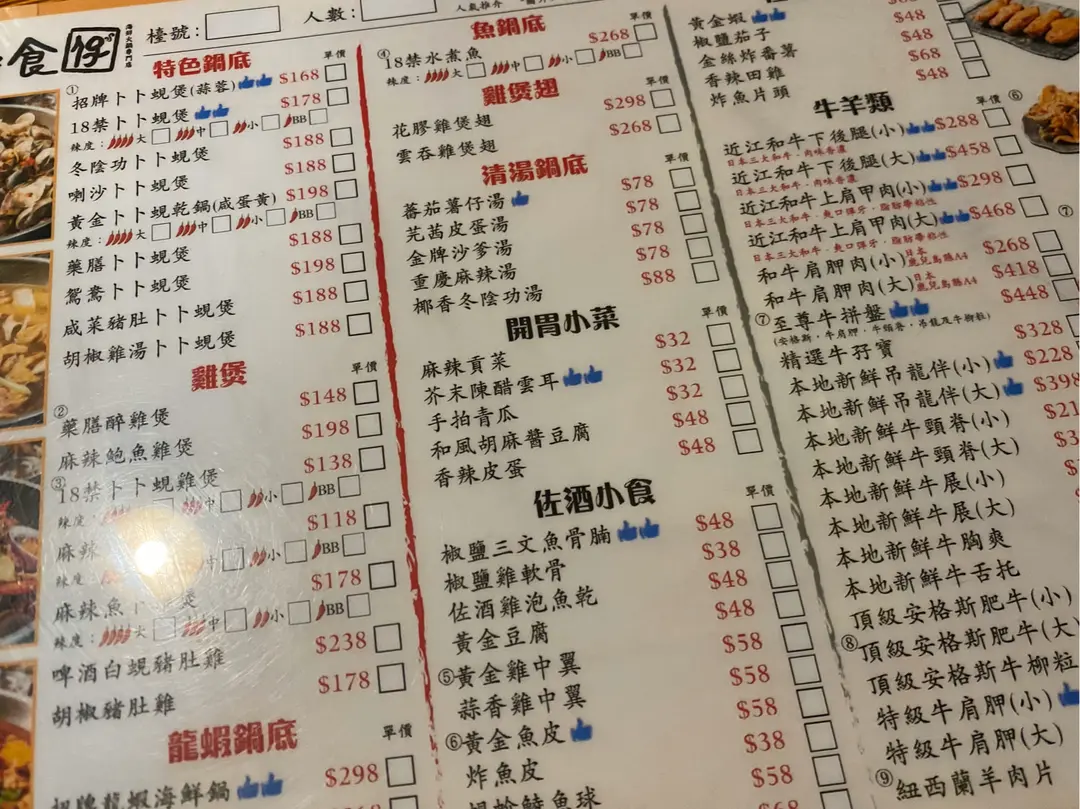 食
海鮮火鍋專門店
檯號:
人數:
特色鍋底
單價
① 招牌卜卜蜆煲(蒜蓉) $168
18禁卜卜蜆煲 $178
辣度: 大 中 小 BB
冬陰功卜卜蜆煲 $188
喇沙卜卜蜆煲 $188
黃金卜卜蜆乾鍋(咸蛋黃) $198
辣度: 大 中 小 BB
藥膳卜卜蜆煲 $188
鴛鴦卜卜蜆煲 $198
咸菜豬肚卜卜蜆煲 $188
胡椒雞湯卜卜蜆煲 $188
雞煲
單價
② 藥膳醉雞煲 $148
麻辣鮑魚雞煲 $198
③ 18禁卜卜蜆雞煲 $138
辣度: 中 小 BB
麻辣 $118
辣度: 中 小 BB
麻辣魚 煲 $178
辣度: 大 中 小 BB
啤酒白蜆豬肚雞 $238
胡椒豬肚雞 $178
龍蝦鍋底
單價
招牌龍蝦海鮮鍋 $298
人氣推介
魚鍋底
單價
④ 18禁水煮魚 $268
辣度: 大 中 小 BB
雞煲翅
單價
花膠雞煲翅 $298
雲吞雞煲翅 $268
清湯鍋底
單價
蕃茄薯仔湯 $78
芫茜皮蛋湯 $78
金牌沙爹湯 $78
重慶麻辣湯 $78
椰香冬陰功湯 $88
開胃小菜
單價
麻辣貢菜 $32
芥末陳醋雲耳 $32
手拍青瓜 $32
和風胡麻醬豆腐 $48
香辣皮蛋 $48
佐酒小食
單價
椒鹽三文魚骨腩 $48
椒鹽雞軟骨 $38
佐酒雞泡魚乾 $48
黃金豆腐 $48
⑤ 黃金雞中翼 $58
蒜香雞中翼 $58
⑥ 黃金魚皮 $58
炸魚皮 $38
$58
黃金蝦
椒鹽茄子 $48
金絲炸番薯 $48
香辣田雞 $68
炸魚片頭 $48
牛羊類
單價
⑥
近江和牛下後腿(小) $288
日本三大和牛．肉味香濃
近江和牛下後腿(大) $458
日本三大和牛．肉味香濃
近江和牛上肩甲肉(小) $298
日本三大和牛．爽口彈牙．脂肪帶粘性
近江和牛上肩甲肉(大) $468
日本三大和牛．爽口彈牙．脂肪帶粘性
⑦
和牛肩胛肉(小) 日本鹿兒島縣A4 $268
和牛肩胛肉(大) 日本鹿兒島縣A4 $418
⑦ 至尊牛拼盤 $448
(安格斯．牛肩胛．牛頸脊．吊龍及牛柳粒)
精選牛孖寶 $328
本地新鮮吊龍伴(小) $228
本地新鮮吊龍伴(大) $398
本地新鮮牛頸脊(小)
本地新鮮牛頸脊(大)
本地新鮮牛展(小)
本地新鮮牛展(大)
本地新鮮牛胸爽
本地新鮮牛舌托
頂級安格斯肥牛(小)
⑧ 頂級安格斯肥牛(大)
頂級安格斯牛柳粒
特級牛肩胛(小)
特級牛肩胛(大)
⑨ 紐西蘭羊肉片